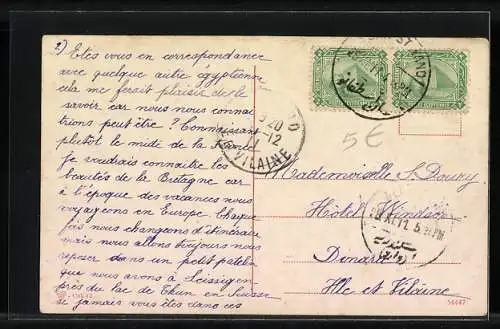 2) Etes vous en correspondance
avec quelque autre egyptienne
cela me ferait plaisir de le
savoir car nous nous connais
trions peut être ? Connaissant
plutôt le midi de la France
je voudrais connaître les
beautés de la Bretagne car
à l'époque des vacances nous
voyageons en Europe. Chaque
fois nous changeons d'itinéraire
mais nous allons toujours nous
reposer dans un petit
que nous avons à Leissigen
près du lac de Thun en Suisse
si jamais vous êtes dans ces
5€
Mademoiselle S. Douny
Hôtel Windsor
Dinard
Ille et Vilaine
VILAINE
56687